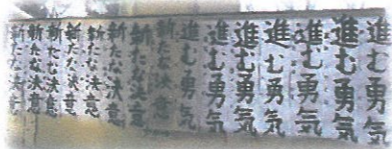 進む勇気
進む勇気
進む勇気
進む勇気
進む勇気
進む勇気
進む勇気
新たな決意
新たな決意
新たな決意
新たな決意
新たな決意
新たな決意
新たな決意
新たな決意